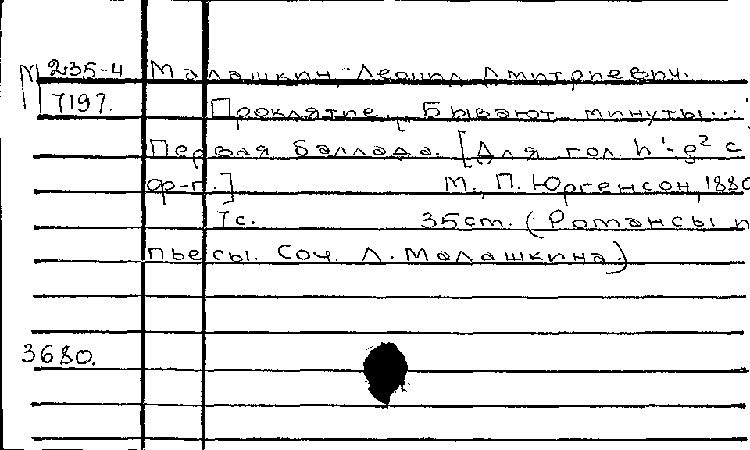 М 235-4 Малашкин, Леонид Дмитриевич.
7197. Проклятие. Бывают минуты...
Первая баллада. [Для гол h¹-g² с
ф-п.] М., П. Юргенсон, 1880
7с. 35cm. (Романсы и
пьесы. Соч. Л. Малашкина.)
3680.